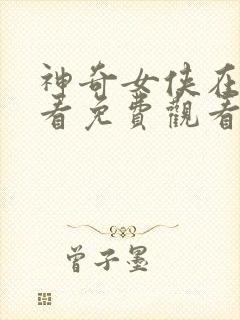 神奇女俠在
看免費觀看
曾子墨